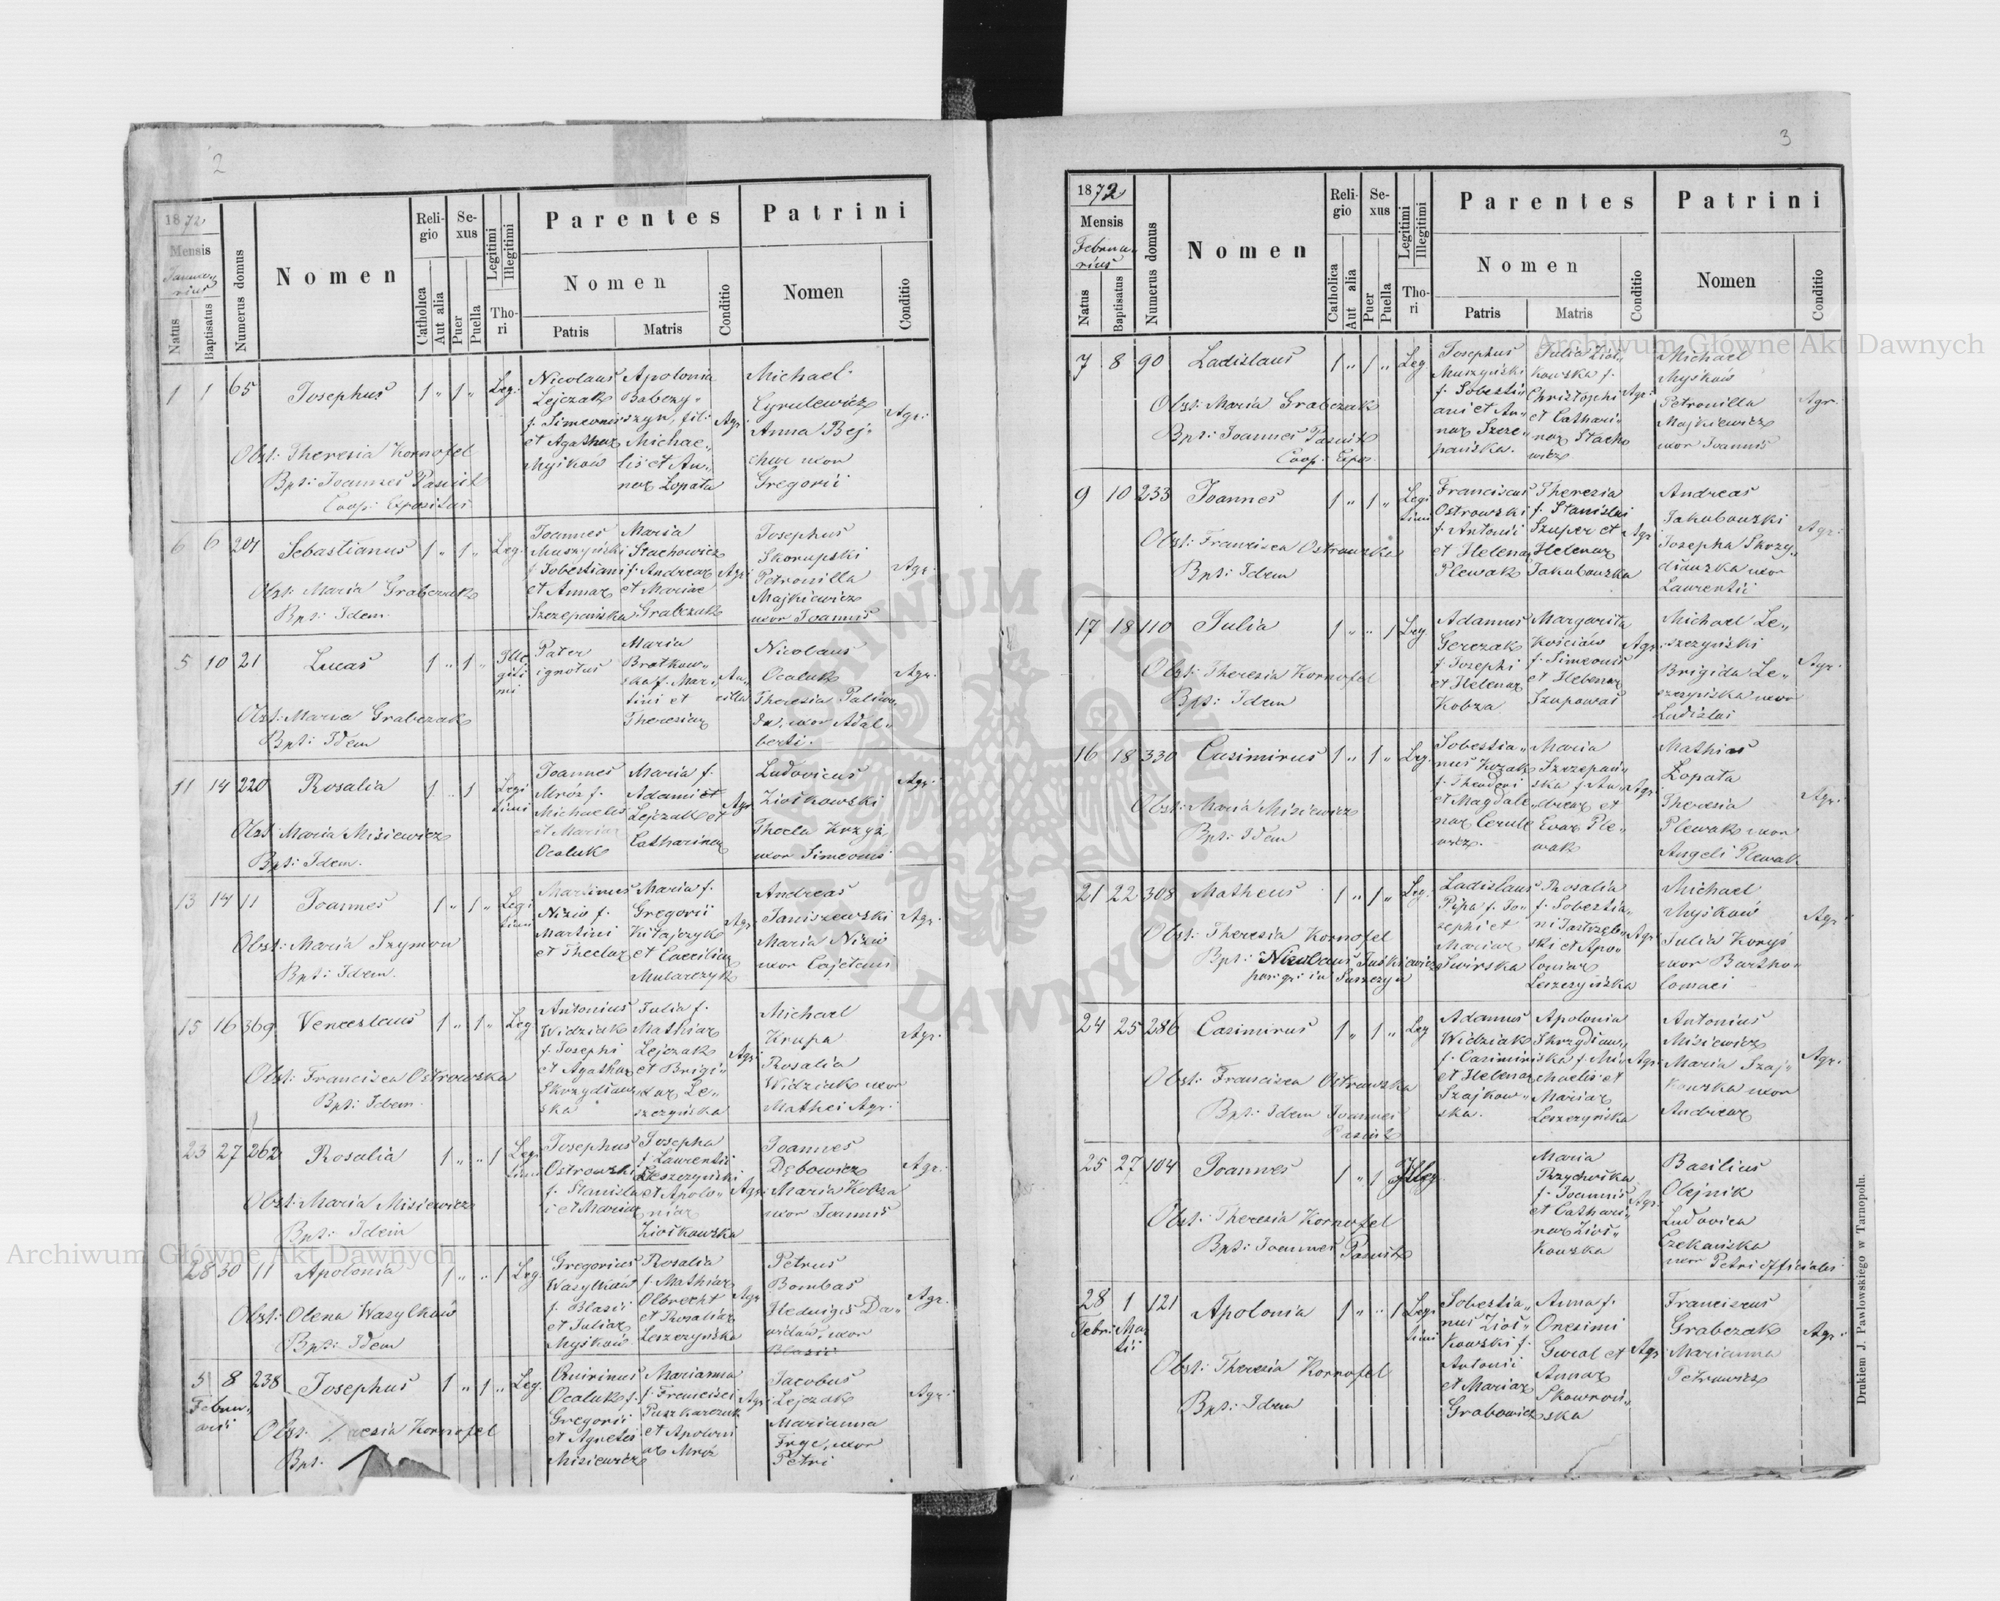 2
1872
Mensis
Januarius
Natus
Baptisatus
Numerus domus
Nomen
Religio
Catholica
Aut alia
Sexus
Puer
Puella
Legitimi
Illegitimi
Thori
Parentes
Nomen
Patris
Matris
Conditio
Patrini
Nomen
Conditio
1 1 65 Josephus 1 " 1 " Leg:
Obst: Theresia Kornafel
Bpt: Joannes Pasiut
Coop: Expositus
Nicolaus
Lejczak
f. Simeonis
et Agathae
Myśków
Apolonia
Babczy„
szyn, fil:
Michae„
lis et An„
nae Łopata
Agr:
Michael
Cyrulewicz
Anna Bej„
char uxor
Gregorii
Agr:
6 6 201 Sebastianus 1 " 1 " Leg:
Obst: Maria Grabczak
Bpt: Idem
Joannes
Muszyński
f. Sobestiani
et Annae
Szczepańska
Maria
Stachowicz
f. Andreae
et Mariae
Grabczak
Agr:
Josephus
Skorupski
Petronilla
Majkiewicz
uxor Joannis
Agr:
5 10 21 Lucas 1 " 1 " Ille
giti
mi
Obst: Maria Grabczak
Bpt: Idem
Pater
ignotus
Maria
Bratkow„
ska f. Mar„
tini et
Theresiae
An„
cilla
Nicolaus
Ocaluk
Theresia
uxor Adal„
berti
Agr:
11 14 220 Rosalia 1 " " 1 Legi
timi
Obst Maria Misiewicz
Bpt: Idem.
Joannes
Mróz f.
Michaelis
et Mariae
Ocaluk
Maria f.
Adami et
Lejczak et
Catharinae
Agr:
Ludovicus
Ziołkowski
Thecla Krzyż
uxor Simeonis
Agr:
13 14 11 Joannes 1 " 1 " Legi
timi
Obst: Maria Szymon
Bpt: Idem.
Martinus
Nizio f.
Martini
et Theclae
Maria f.
Gregorii
Kitajczyk
et Caeciliae
Mularczyk
Agr:
Andreas
Janiszewski
Maria Nizio
uxor Cajetani
Agr:
15 16 369 Venceslaus 1 " 1 " Leg
Obst: Francisca Ostrowska
Bpt: Idem.
Antonius
Widziak
f. Josephi
et Agathae
Skrzydlow
ska
Julia f.
Mathiae
Lejczak
et Brigi„
dae Le„
szczyńska
Agr:
Michael
Krupa
Rosalia
Widziak uxor
Mathei Agr:
Agr:
23 27 262 Rosalia 1 " " 1 Legi
timi
Obst: Maria Misiewicz
Bpt: Idem
Josephus
Ostrowski
f. Stanisla
i et Mariae
Josepha
f. Laurentii
Leszczyński
et Apolo„
niae
Ziołkowska
Agr:
Joannes
Dębowicz
Maria Kobza
uxor Joannis
Agr:
28 30 11 Apolonia 1 " " 1 Leg.
Obst: Olena Wasylków
Bpt: Idem
Gregorius
Wasylków
f. Blasii
et Juliae
Myśków
Rosalia
f. Mathiae
Olbrecht
et Rosaliae
Leszczyńska
Agr
Petrus
Bombas
Hedwigis Da„
uxor
Blasii
Agr.
5 8 238 Josephus 1 " 1 " Leg.
Febru„
arii
Obst. Kornafel
Bpt.
Quirinus
Ocaluk f.
Gregorii
et Agnetis
Misiewicz
Marianna
f. Francisci
Puszkarczuk
et Apoloni
ae Mróz
Agr:
Jacobus
Lejczak
Marianna
uxor
Petri
Agr.
3
1872
Mensis
Februarius
Natus
Baptisatus
Numerus domus
Nomen
Religio
Catholica
Aut alia
Sexus
Puer
Puella
Legitimi
Illegitimi
Thori
Parentes
Nomen
Patris
Matris
Conditio
Patrini
Nomen
Conditio
7 8 90 Ladislaus 1 " 1 " Leg
Obst: Maria Grabczak
Bpt: Joannes Pasiut
Coop: Expo.
Josephus
Muszyński
f. Sobesti
ani et An„
nae Szcze„
pańska.
Julia Ziół„
kowska f.
Christophi
et Cathari„
nae Stacho
wicz
Agr:
Michael
Myśków
Petronilla
Majkiewicz
uxor Joannis
Agr.
9 10 233 Joannes 1 " 1 " Legi
timi
Obst: Francisca Ostrowska
Bpt: Idem
Franciscus
Ostrowski
f. Antonii
et Helenae
Plewak
Theresia
f. Stanislai
Szuper et
Helenae
Jakubowska
Agr
Andreas
Jakubowski
Josepha Skrzy„
dlowska uxor
Laurentii
Agr:
17 18 110 Julia 1 " " 1 Leg
Obst: Theresia Kornafel
Bpt: Idem
Adamus
Gerczak
f. Josephi
et Helenae
Kobza
Margarita
Kościów
f. Simeonis
et Helenae
Agr:
Michael Le„
szczyński
Brigida Le„
szczyńska uxor
Ladislai
Agr:
16 18 330 Casimirus 1 " 1 " Leg.
Obst: Maria Misiewicz
Bpt: Idem
Sobestia„
nus Kozak
f. Theodori
et Magdale
nae Cerule
wicz.
Maria
Szczepań„
ska f. An„
dreae et
Evae Ple„
wak
Agr:
Mathias
Łopata
Theresia
Plewak uxor
Angeli Plewak
Agr.
21 22 308 Matheus 1 " 1 " Leg.
Obst: Theresia Kornafel
Bpt: Nicolaus Juskiewicz
Ladislaus
Pipa f. Jo„
sephi et
Mariae
Swirska
Rosalia
f. Sobestia„
ni Jastrzęb„
ski et Apo„
loniae
Leszczyńska
Agr:
Michael
Myśków
Julia Koryś
uxor Bartho„
lomaei
Agr:
24 25 286 Casimirus 1 " 1 " Leg
Obst: Francisca Ostrowska
Bpt: Idem Joannes
Pasiut
Adamus
Widziak
f. Casimiri
et Helenae
Szajkow„
ska.
Apolonia
Skrzydlow„
ska f. Mi„
chaelis et
Mariae
Leszczyńska
Agr:
Antonius
Misiewicz
Maria Szaj„
kowska uxor
Andreae
Agr:
25 27 104 Joannes 1 " 1 Illeg.
Obst: Theresia Kornafel
Bpt: Joannes Pasiut
Maria
Przychocka
f. Joannis
et Cathari„
nae Ziół„
kowska
Agr:
Basilius
Olejnik
Ludovica
Czekańska
uxor Petri officialis
28 1 121 Apolonia 1 " " 1 Legi
Febr: Mar
tii timi
Obst: Theresia Kornafel
Bpt: Idem
Sobestia„
nus Ziół„
kowski f.
Antonii
et Mariae
Grabowicz
Anna f.
Onesimi
Gwiol et
Annae
Skowroń„
ska
Agr
Franciscus
Grabczak
Marianna
Petrowicz
Agr:
Drukiem J. Pawłowskiego w Tarnopolu.
Archiwum Główne Akt Dawnych
Archiwum Główne Akt Dawnych
ARCHIWUM GŁÓWNE AKT DAWNYCH